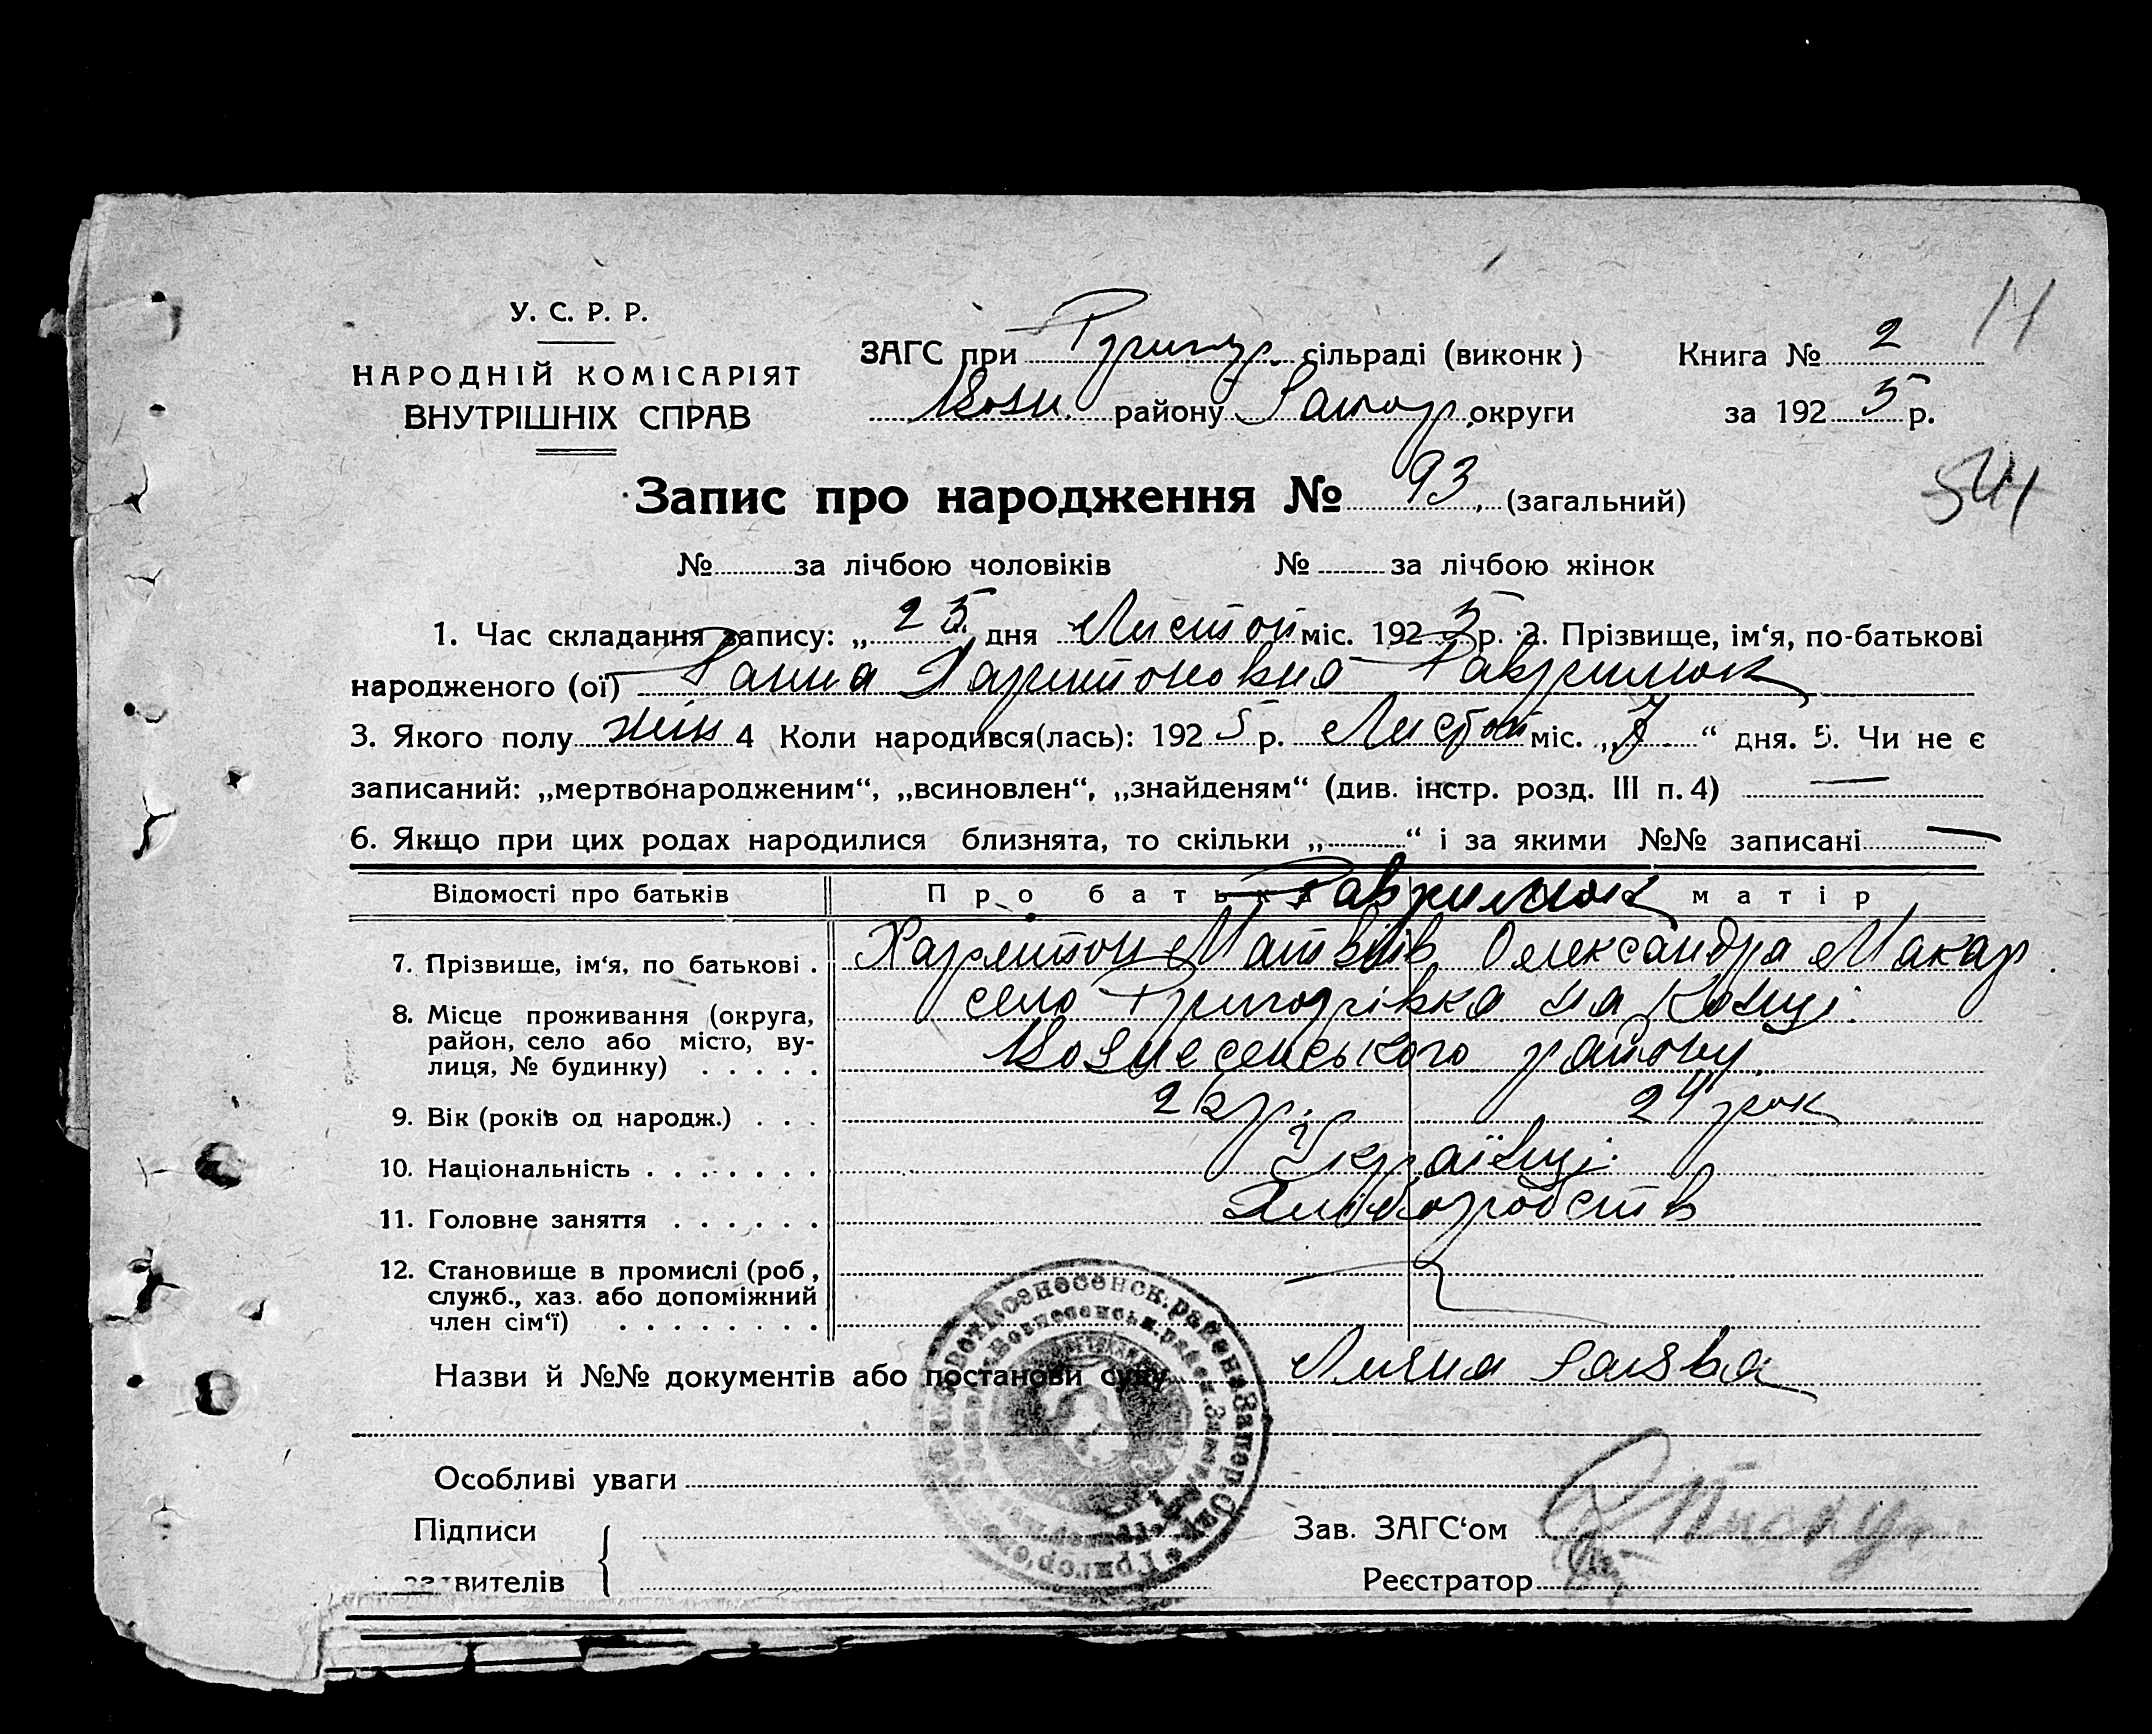 У. С. Р. Р.
НАРОДНІЙ КОМІСАРІЯТ
ВНУТРІШНІХ СПРАВ
ЗАГС при Григор. сільраді (виконк)
Возн. району Запор. округи
Книга № 2
за 192 5 р.
Запис про народження № 93 (загальний)
544
№ за лічбою чоловіків № за лічбою жінок
1. Час складання запису: „ 25 дня Листоп міс. 192 5 р. 2. Прізвище, ім‘я, по-батькові
народженого (ої) Ганна Харитоновна Гаврилюк
3. Якого полу жін 4 Коли народився(лась): 192 5 р. Листоп міс. „ 7 “ дня. 5. Чи не є
записаний: „мертвонародженим“, „всиновлен“, „знайденям“ (див. інстр. розд. III п. 4) —
6. Якщо при цих родах народилися близнята, то скільки „ “ і за якими №№ записані —
Відомості про батьків Про батьк Гаврилюк матір
7. Прізвище, ім‘я, по батькові . Харитон Матвіїв Олександра Макар.
8. Місце проживання (округа, село Григорівка на Конці
район, село або місто, ву- Вознесенського району
лиця, № будинку) . . . . .
9. Вік (років од народж.) . . . р. 24 рок
10. Національність . . . . . . . Українці
11. Головне заняття . . . . . . Хліборобств
12. Становище в промислі (роб,
служб., хаз. або допоміжний
член сім‘ї) . . . . . . . .
Назви й №№ документів або постанови суду Лична заява
Особливі уваги
Підписи
вителів
Зав. ЗАГС‘ом
Реєстратор